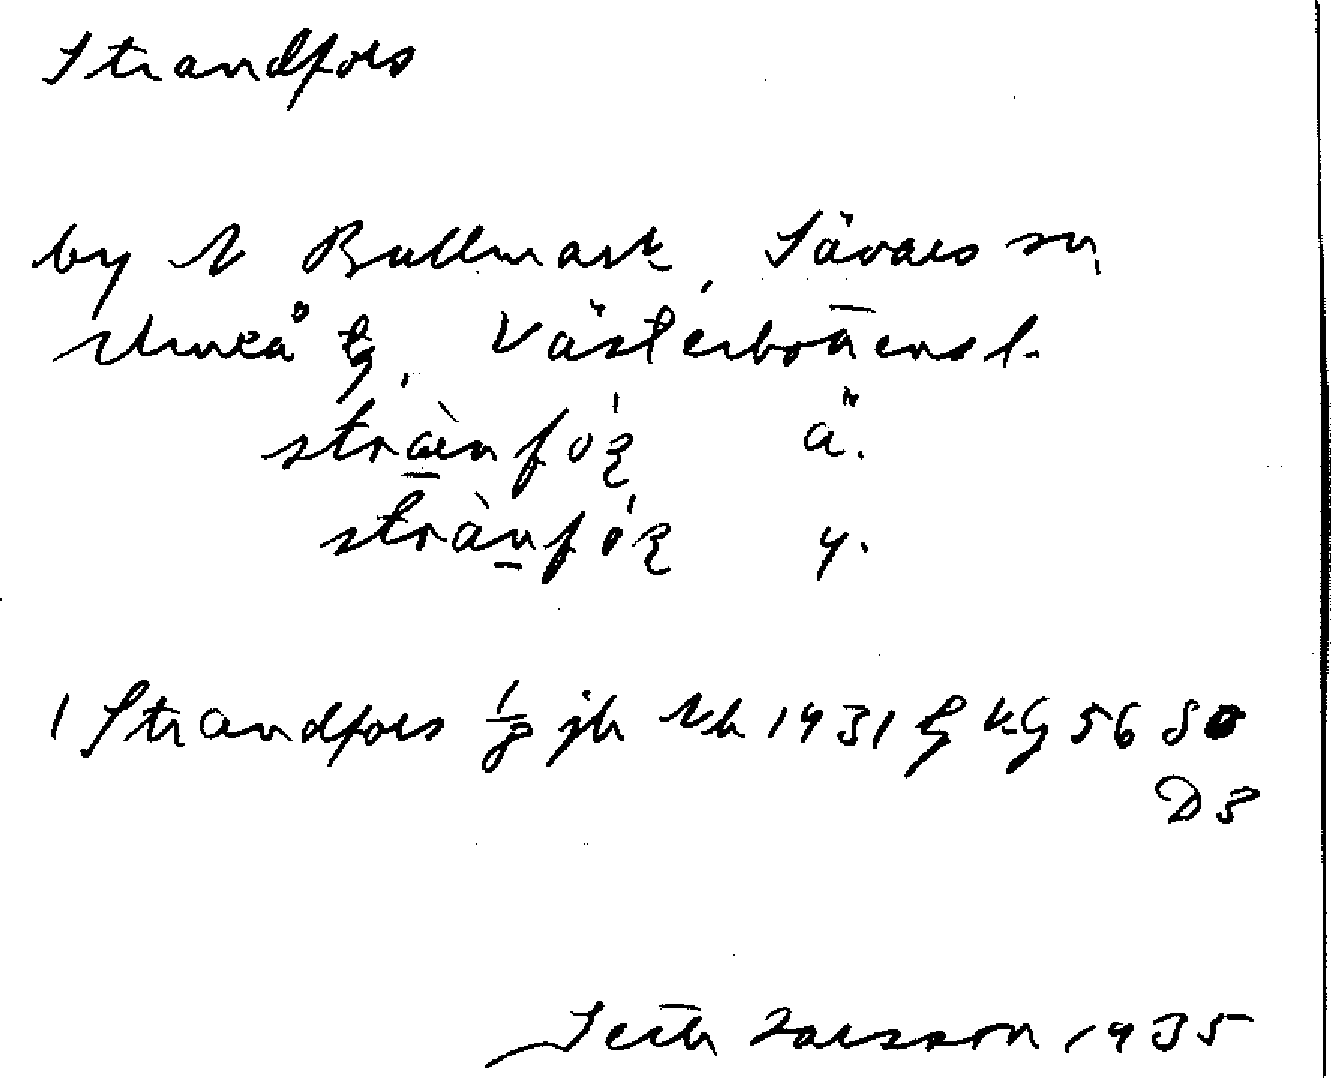 Strandfors
by N Bullmark, Sävars sn,
Umeå tg, Västerbottens l.
stræ̀nfóʂ ä.
strànfóʂ y.
1 Strandfors jb 1931 kg 56 80
D3
Seth Larsson 1935